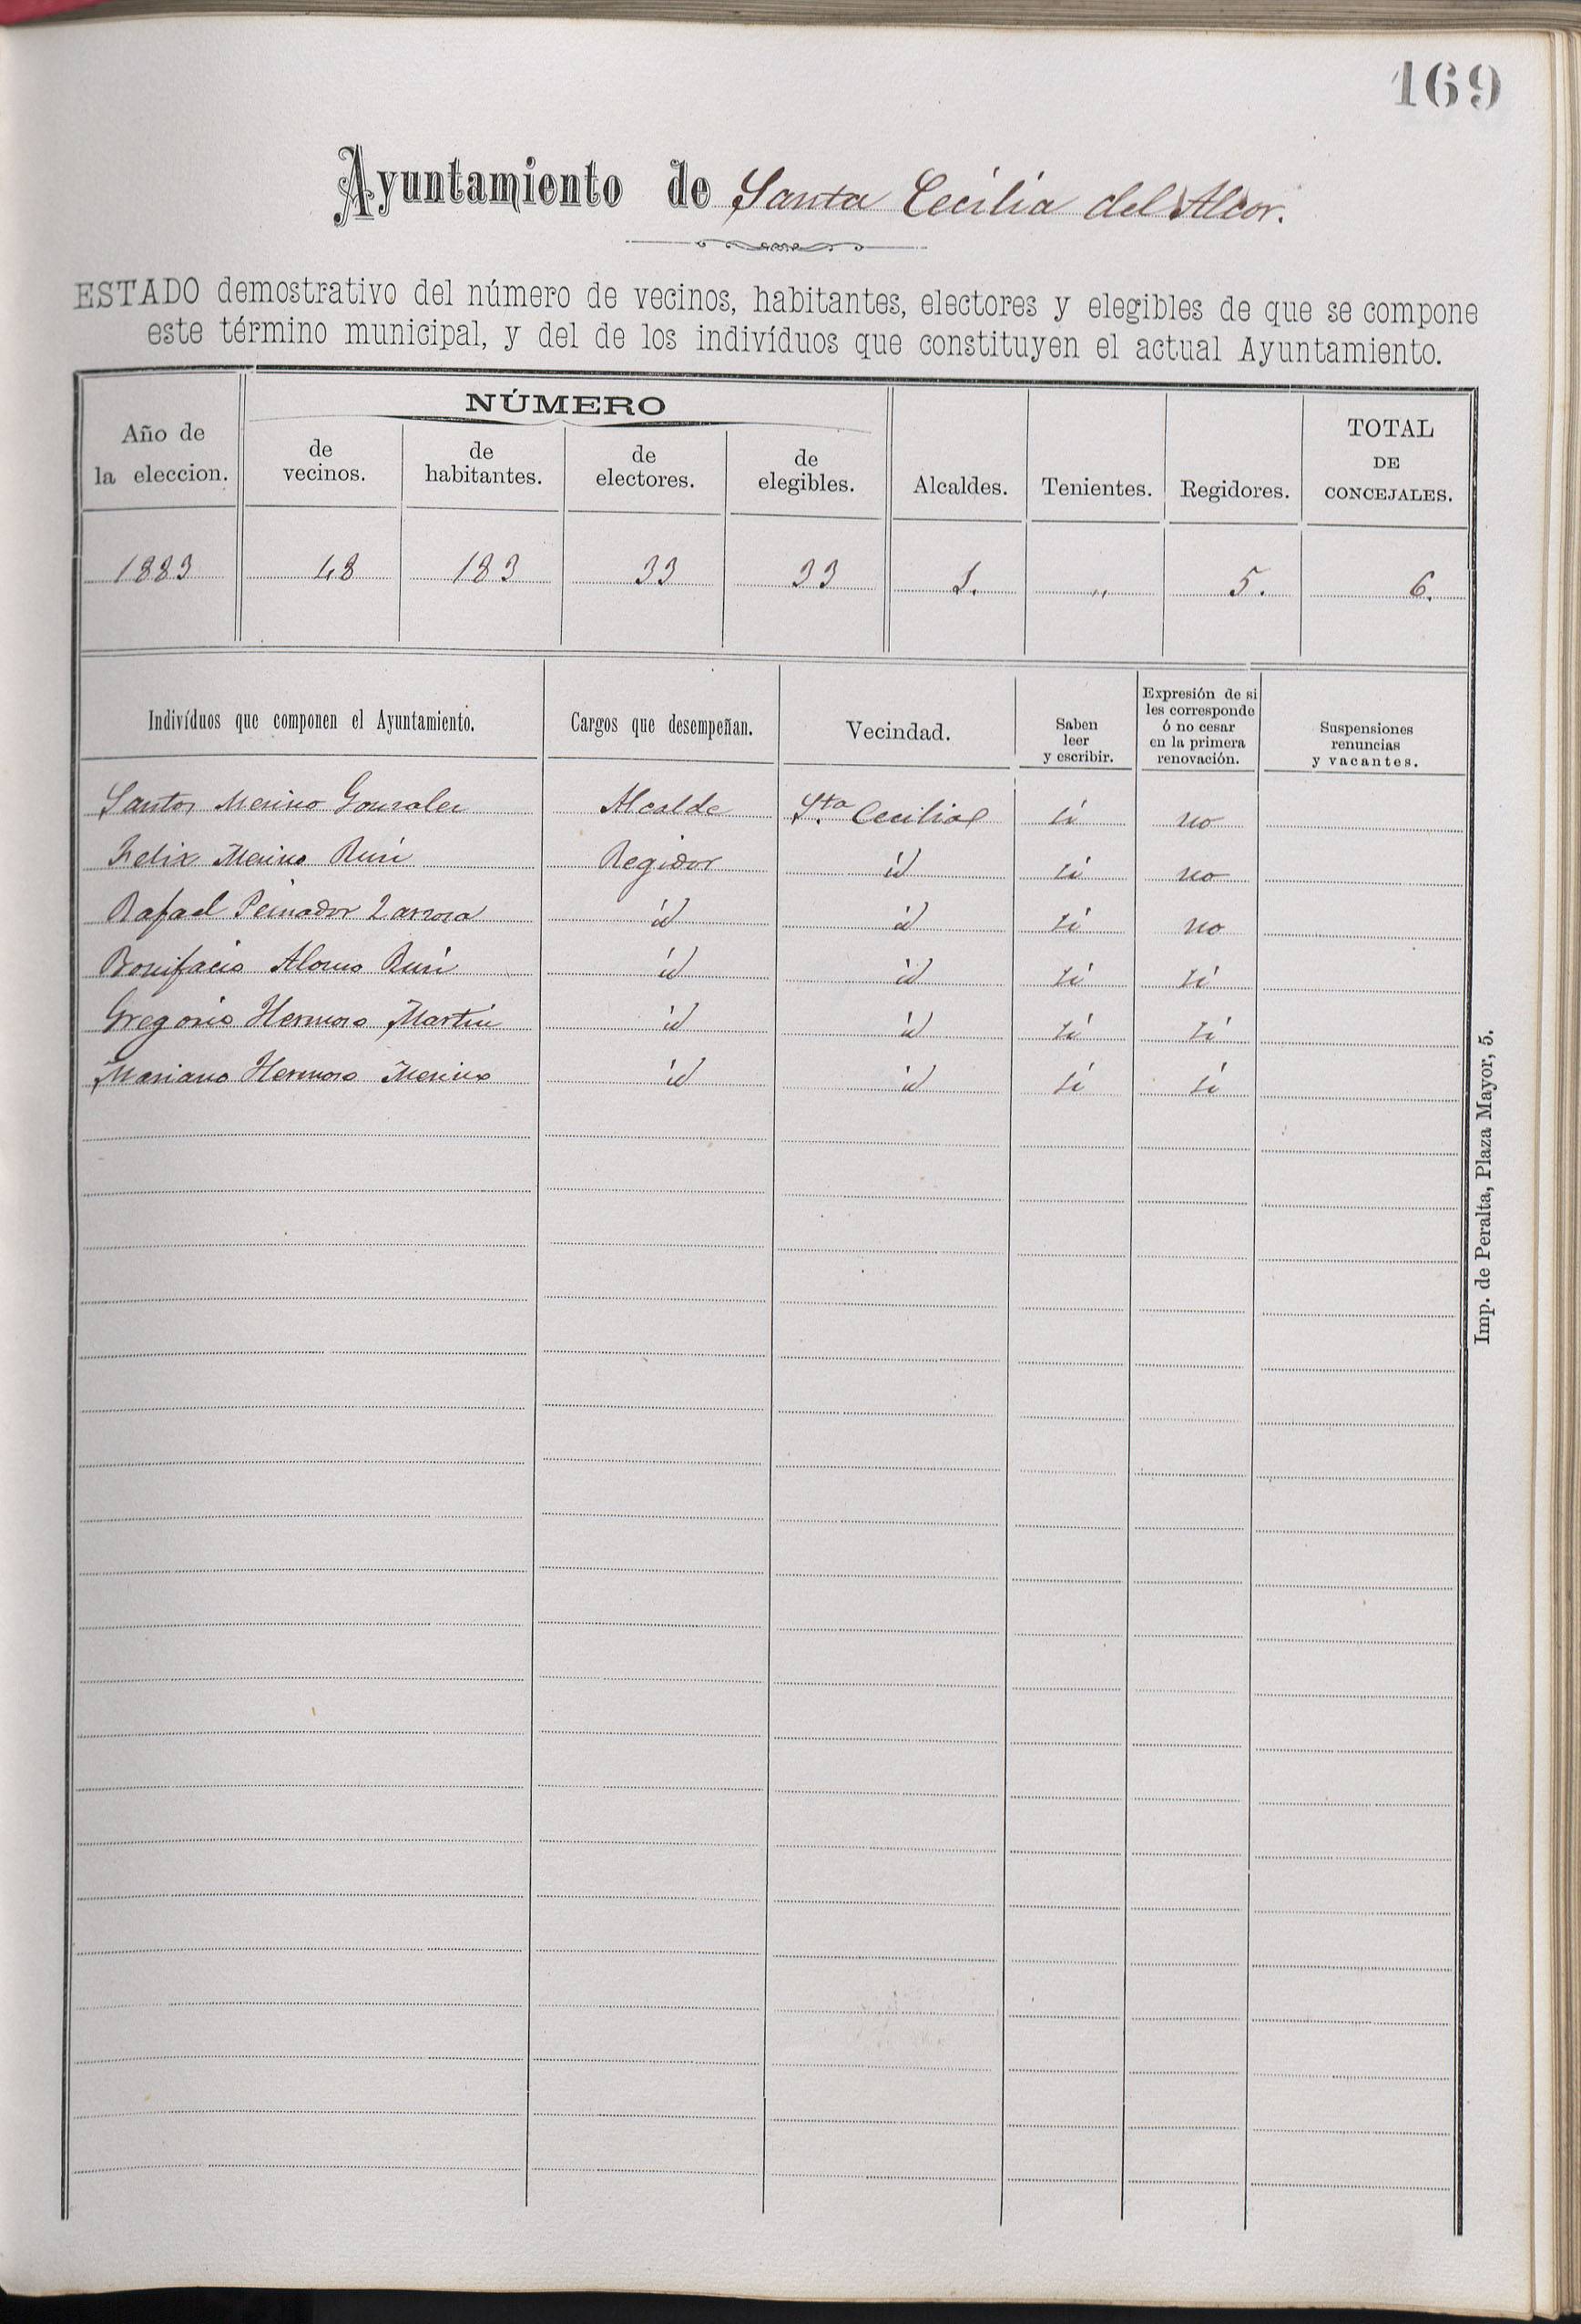 169
Ayuntamiento de Santa Cecilia del Alcor.
ESTADO demostrativo del número de vecinos, habitantes, electores y elegibles de que se compone
este término municipal, y del de los indivíduos que constituyen el actual Ayuntamiento.
NÚMERO
Año de la eleccion. de vecinos. de habitantes. de electores. de elegibles. Alcaldes. Tenientes. Regidores. TOTAL DE CONCEJALES.
1883 48 183 33 33 1. " 5. 6.
Indivíduos que componen el Ayuntamiento. Cargos que desempeñan. Vecindad. Saben leer y escribir. Expresión de si les corresponde ó no cesar en la primera renovación. Suspensiones renuncias y vacantes.
Santos Merino Gonzalez Alcalde Sta. Cecilia si no
Felix Merino Ruiz Regidor id si no
Rafael Peinador id id si no
Bonifacio Alonso Ruiz id id si si
Gregorio Hermoso Martin id id si si
Mariano Hermoso Merino id id si si
Imp. de Peralta, Plaza Mayor, 5.